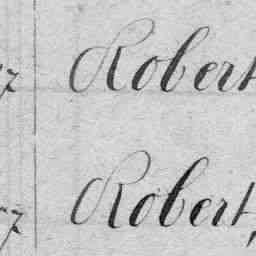 7 Robert
7 Robert,